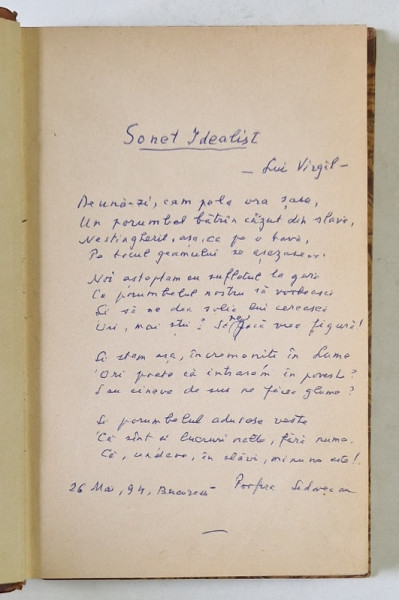 Sonet Idealist
- Lui Virgil -
Deună-zi, cam pela ora șase,
Un porumbel bătrîn căzut din slavă,
Nestingherit, așa, ca pe o navă,
Pe tocul geamului se așezase.
Noi așteptam cu sufletul la gură
Ca porumbelul nostru să vorbească
Și să ne dea solia lui cerească
Ori, mai știi? Să ne facă vreo figură!
Și stam așa, încremeniți în lume
Ori poate că intrasem în poveste?
Sau cineva de sus ne făcea glume?
Și porumbelul adusese veste
Că sînt și lucruri fără nume.
Că, undeva, în slăvi, minune este!
26 Mai, 94, București